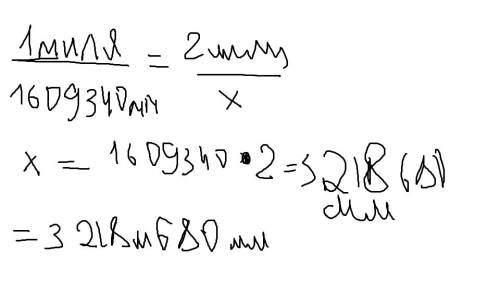 1миля / 1609340мм = 2мили / x
x = 1609340 • 2 = 3218680 мм
= 3 218м680 мм